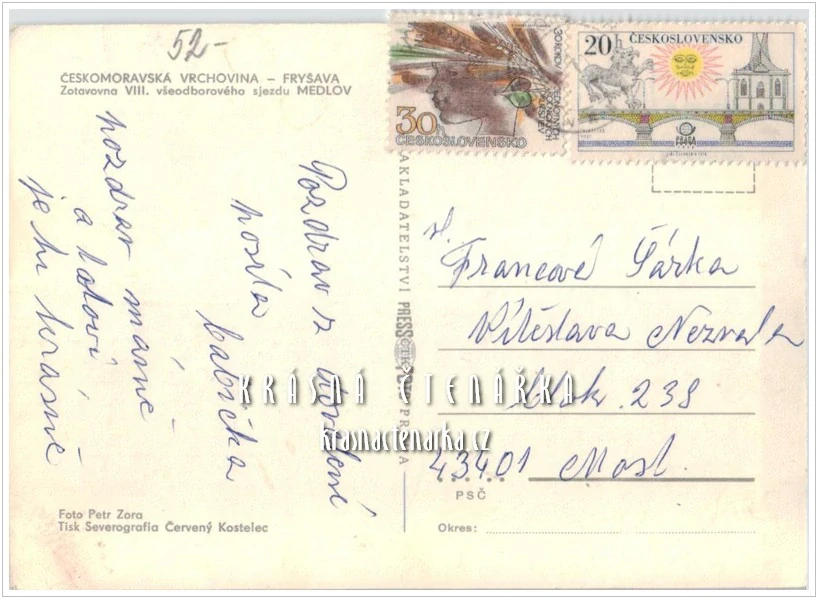 52-
ČESKOMORAVSKÁ VRCHOVINA – FRYŠAVA
Zotavovna VIII. všeodborového sjezdu MEDLOV
30
ČESKOSLOVENSKO
20 h
ČESKOSLOVENSKO
PRAGA
Pozdrav z dovolené
posílá
babička
pozdrav mamě
a taťovi
je tu krásně
NAKLADATELSTVÍ PRESSFOTO PRAHA
sl.
Francová Šárka
Vítěslava Nezvala
blok. 238
43401 Most.
PSČ
Okres:
Foto Petr Zora
Tisk Severografia Červený Kostelec
KRÁSNÁ ČTENÁŘKA
krasnactenarka.cz